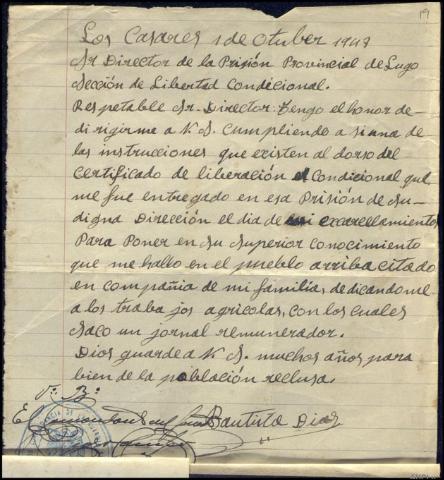 19
Los Casares 1 de Otuber 1948
Sr Director de la Prisión Provincial de Lugo
Sección de Libertad Condicional.
Respetable Sr. Director: Tengo el honor de
dirigirme a V.S. cumpliendo a si una de
las instrucciones que existen al dorso del
certificado de liberación Condicional que
me fue entregado en esa Prisión de su
digna Dirección el dia de mi excarcllamiento
Para Poner en su superior conocimiento
que me hallo en el pueblo arriba citado
en compañia de mi familia, dedicandome
a los trabajos agricolas, con los cuales
saco un jornal remunerador.
Dios guarde a V.S. muchos años para
bien de la población reclusa.
V.º B.º
Bautista Dias